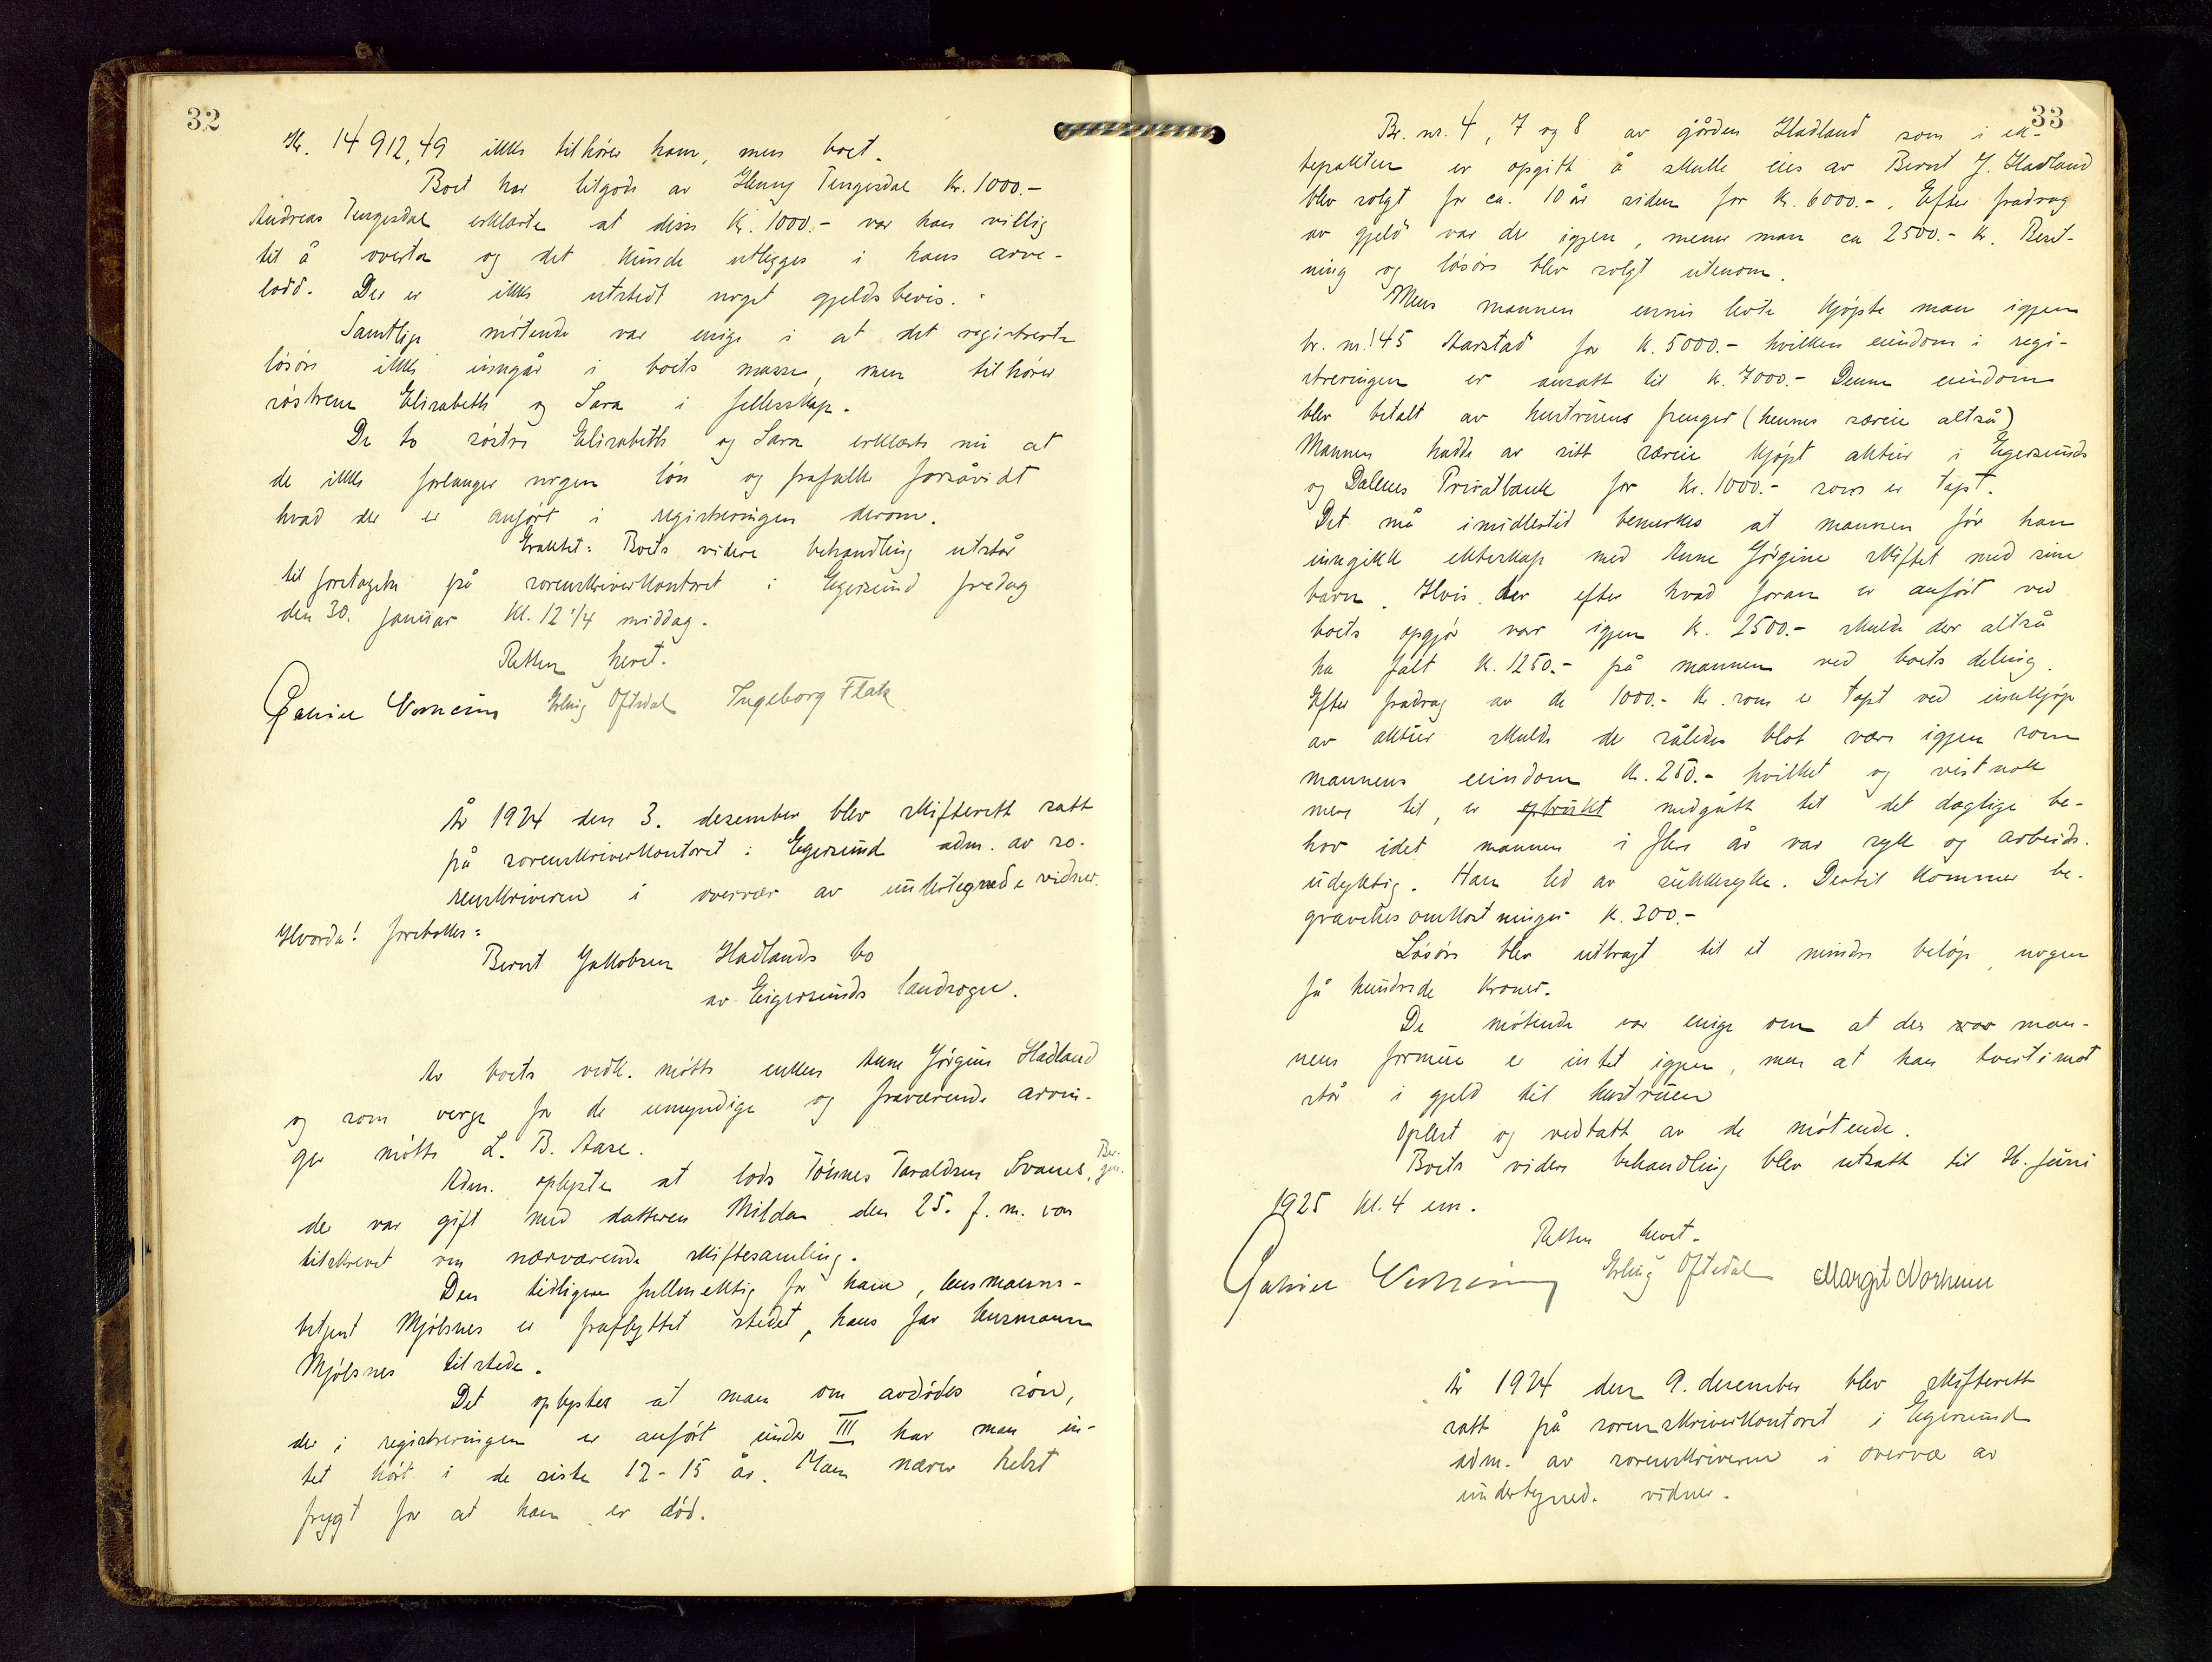 32
Kr. 14 912,49 ikke tilhører ham, men boet.
Boet har tilgode av Henny Tengesdal Kr. 1000.-
Andreas Tengesdal erklærte at disse Kr. 1000.- var han villig
til å overta og det kunde utlegges i hans arve-
lodd. Der er ikke utstedt noget gjeldsbevis.
Samtlige møtende var enige i at det registrerte
løsøre ikke inngår i boets masse, men tilhører
søstrene Elisabeth og Sara i fellesskap.
De to søstre Elisabeth og Sara erklærte nu at
de ikke forlanger nogen løn og frafalle forsåvidt
hvad der er anført i registreringen derom.
Eraktet: Boets videre behandling utstår
til foretagelse på sorenskriverkontoret i Egersund fredag
den 30. januar kl. 12 1/4 middag.
Retten hevet.
Erling Oftedal Ingeborg Flak
År 1924 den 3. desember blev skifterett satt
på sorenskriverkontoret i Egersund adm. av so-
renskriveren i overvær av undertegnede vidner.
Hvorda! foretokes:
Bernt Jakobsen Hadlands bo
av Eigersunds landsogn.
Av boets vedk. møtte enken Anne Jørgine Hadland
og som verge for de umyndige og fraværende arvin-
ger møtte L. B. Aase.
Adm. oplyste at lods Tønnes Taraldsen Svanes, Ber-
gen.
der var gift med datteren Milda den 25. f. m. var
tilskrevet om nærværende skiftesamling.
Den tidligere fullmektig for ham, lensmanns-
betjent Mjølsnes er fraflyttet stedet, hans far lensmann
Mjølsnes tilstede.
Det oplystes at man om avdødes sønn,
der i registreringen er anført under III har man in-
tet hørt i de siste 12-15 år. Man nærer helst
frygt for at han er død.
33
Br. nr. 4, 7 og 8 av gården Hadland som i ek-
tepakten er opgitt å skulle eies av Bernt J. Hadland
blev solgt for ca. 10 år siden for Kr. 6000.-. Efter fradrag
av gjeld var der igjen, mener man ca 2500.- Kr. Beset-
ning og løsøre blev solgt utenom.
Mens mannen ennu levte kjøpte man igjen
br. nr. 145 Aarstad for k. 5000.- hvilken eiendom i regi-
streringen er ansatt til k. 7000.- Denne eiendom
blev betalt av hustruens penger (hennes særeie altså)
Mannen hadde av sitt særeie kjøpt aktier i Egersunds
og Dalenes Privatbank for Kr. 1000.- som er tapt.
Det må imidlertid bemerkes at mannen før han
inngikk ekteskap med Anne Jørgine skiftet med sine
barn. Hvis der efter hvad foran er anført ved
boets opgjør var igjen k. 2500.- skulde der altså
ha falt k. 1250.- på mannen ved boets deling.
Efter fradrag av de 1000.- Kr. som er tapt ved innkjøp
av aktier skulde der således blot være igjen som
mannens eiendom Kr. 250.- hvilket og vistnok
mere til, er opbrukt medgått til det daglige be-
hov idet mannen i flere år var syk og arbeids-
udyktig. Han led av sukkersyke. Dertil kommer be-
gravelsesomkostninger k. 300.-
Løsøre blev utbragt til et mindre beløp, nogen
få hundrede kroner.
De møtende var enige om at der av man-
nens formue er intet igjen, men at han tvertimot
står i gjeld til hustruen
Oplest og vedtatt av de møtende.
Boets videre behandling blev utsatt til 16. juni
1925 kl. 4 em.
Retten hevet.
Erling Oftedal Margit Norheim
År 1924 den 9. desember blev skifterett
satt på sorenskriverkontoret i Egersund
adm. av sorenskriveren i overvær av
undertegned. vidner.